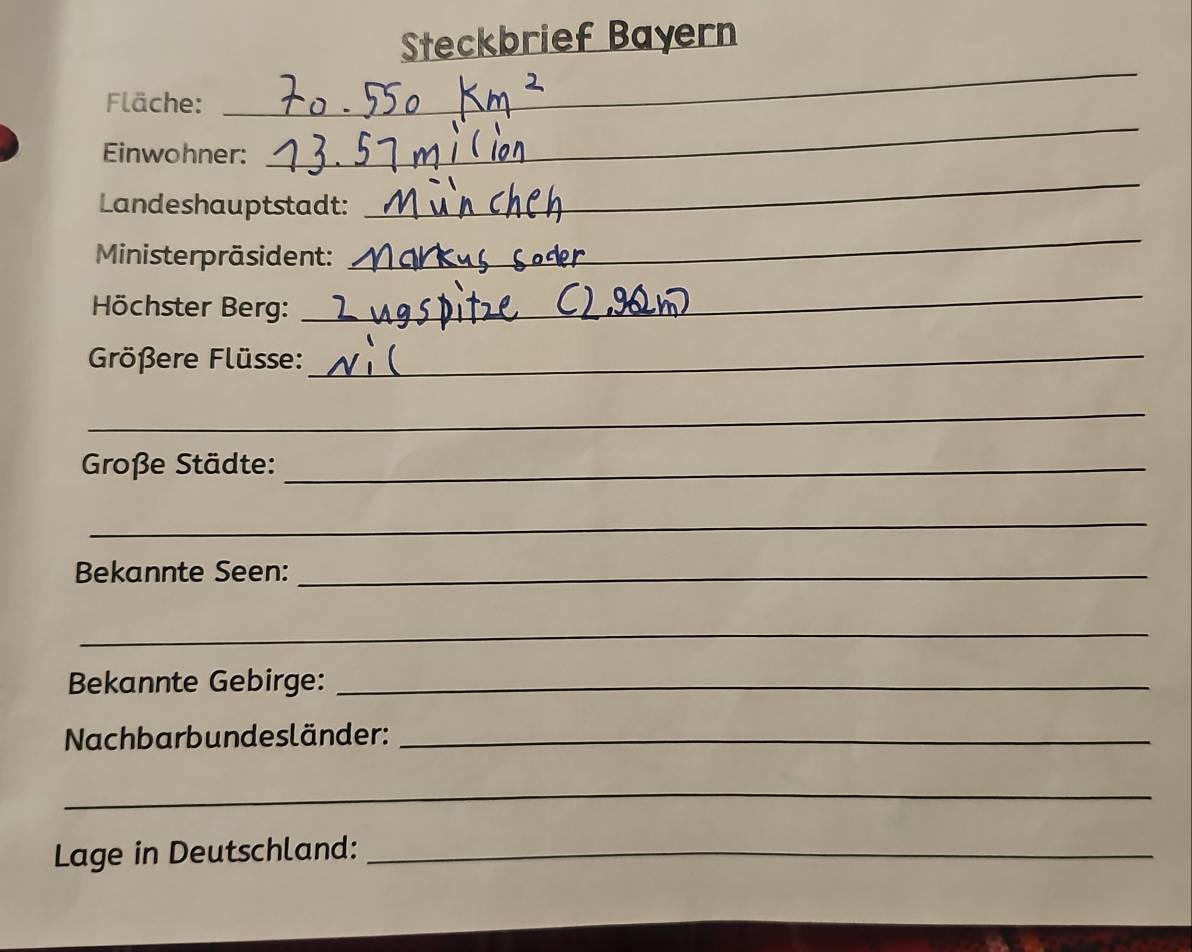 Steckbrief Bayern
Fläche: 70.550 Km²
Einwohner: 13.57 milion
Landeshauptstadt: München
Ministerpräsident: Markus soder
Höchster Berg: Zugspitze (2,962m)
Größere Flüsse: Nil
Große Städte:
Bekannte Seen:
Bekannte Gebirge:
Nachbarbundesländer:
Lage in Deutschland: